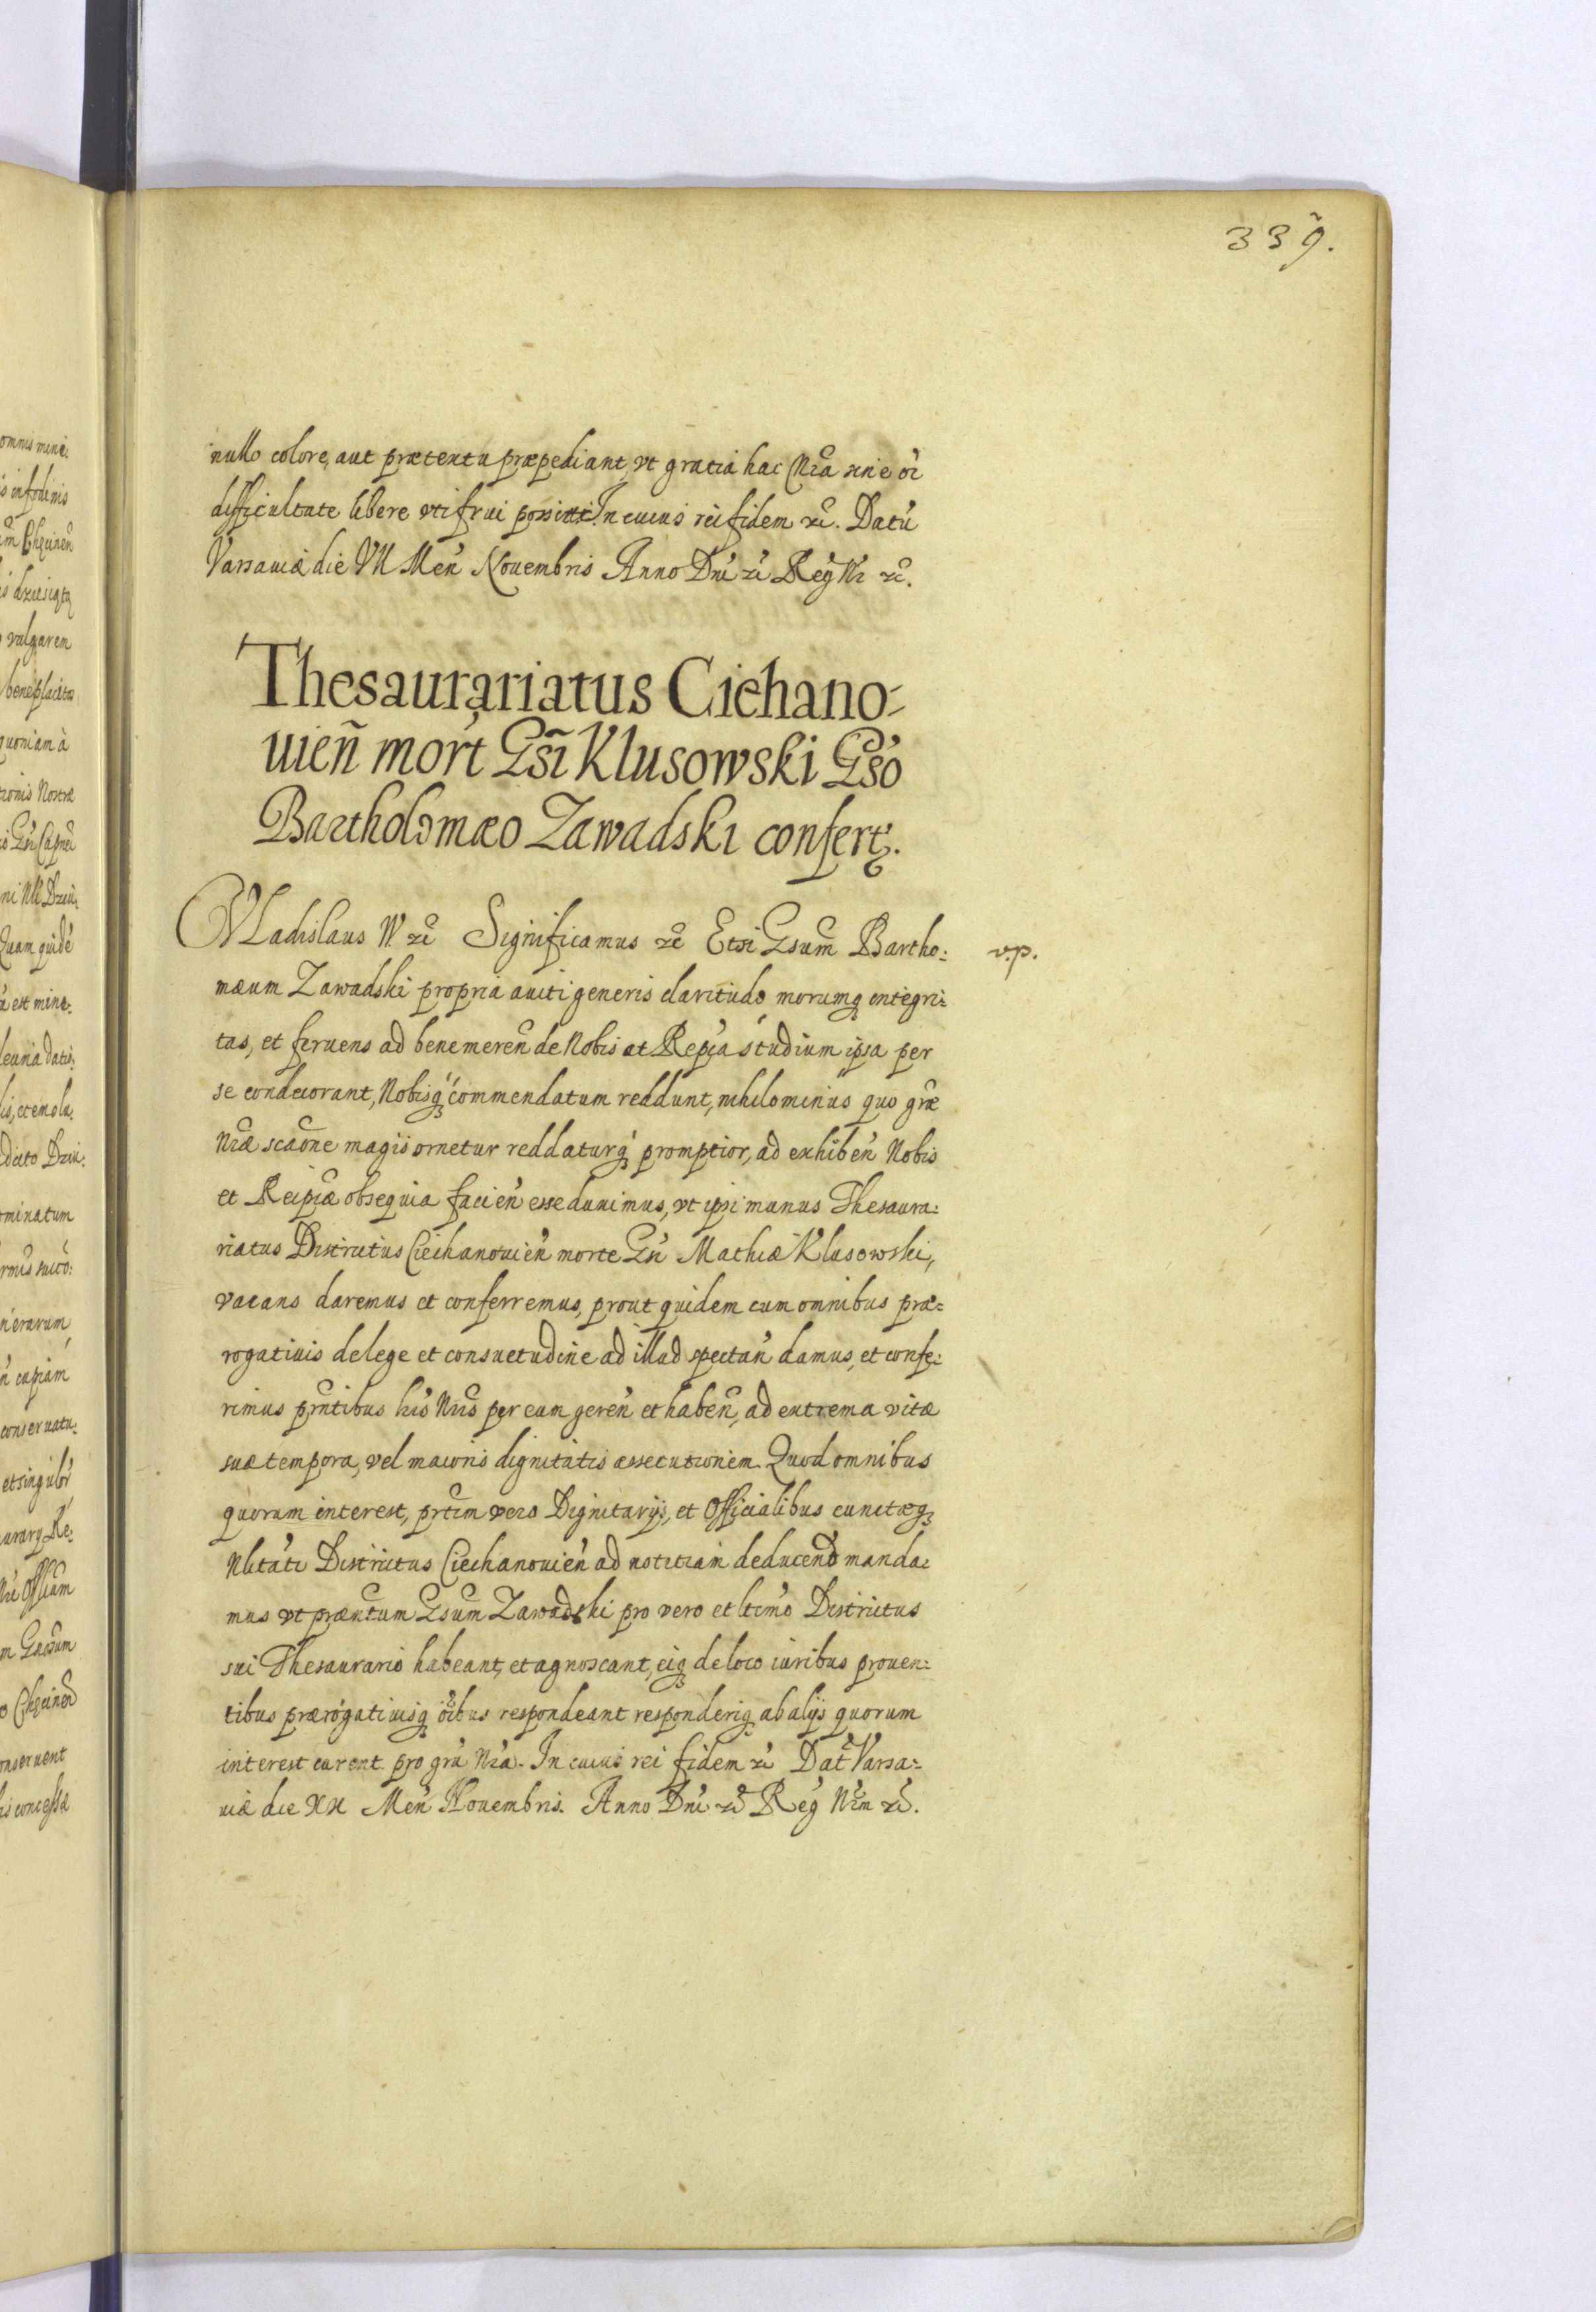 339.
nullo colore, aut prætextu præpediant, vt gratia hac Nrã sine oĩ
difficultate libere vti frui possint. In cuius rei fidem &c. Datũ
Varsauiæ die VII Men̄ Nouembris Anno Dni &c Reg Nr̄ &c.
Thesaurariatus Ciehano-
uien̄ mort Gsi Klusowski Gso
Bartholomæo Zawadski confert.
Vladislaus IV. &c Significamus &c Etsi Gsum̃ Bartho:
mæum Zawadski propria auiti generis claritudo morumq integri:
tas, et feruens ad benemeren̄ de Nobis et Repca studium ipsa per
se condecorant, Nobisq commendatum reddunt, nihilominus quo græ
Nræ scaõne magis ornetur reddaturq promptior, ad exhiben̄ Nobis
et Reipcæ obsequia facien̄ esse duximus, vt ipsi munus Thesaura:
riatus Districtus Ciechanouien̄ morte Gsi Mathiæ Klusowski,
vacans daremus et conferremus, prout quidem cum omnibus præ:
rogatiuis de lege et consuetudine ad illud spectan̄ damus, et confe:
rimus prñtibus hīs Nrīs per eum geren̄ et haben̄, ad extrema vitæ
suæ tempora, vel maioris dignitatis assecutionem. Quod omnibus
quorum interest, prtim̃ vero Dignitarijs, et Officialibus cunctæq
Nlitati Districtus Ciechanouien̄ ad notitiam deducend̃o manda:
mus vt præn̄tum Gsum̃ Zawadski pro vero et ltimo Districtus
sui Thesaurario habeant, et agnoscant, eiq de loco iuribus prouen:
tibus prærogatiuisq oĩbus respondeant responderiq ab alijs quorum
interest curent pro gra Nra. In cuius rei fidem &c Dat Varsa:
uiæ die XX Men̄ Nouembris. Anno Dni &c Reg Nrm̃ &c.
v.p.